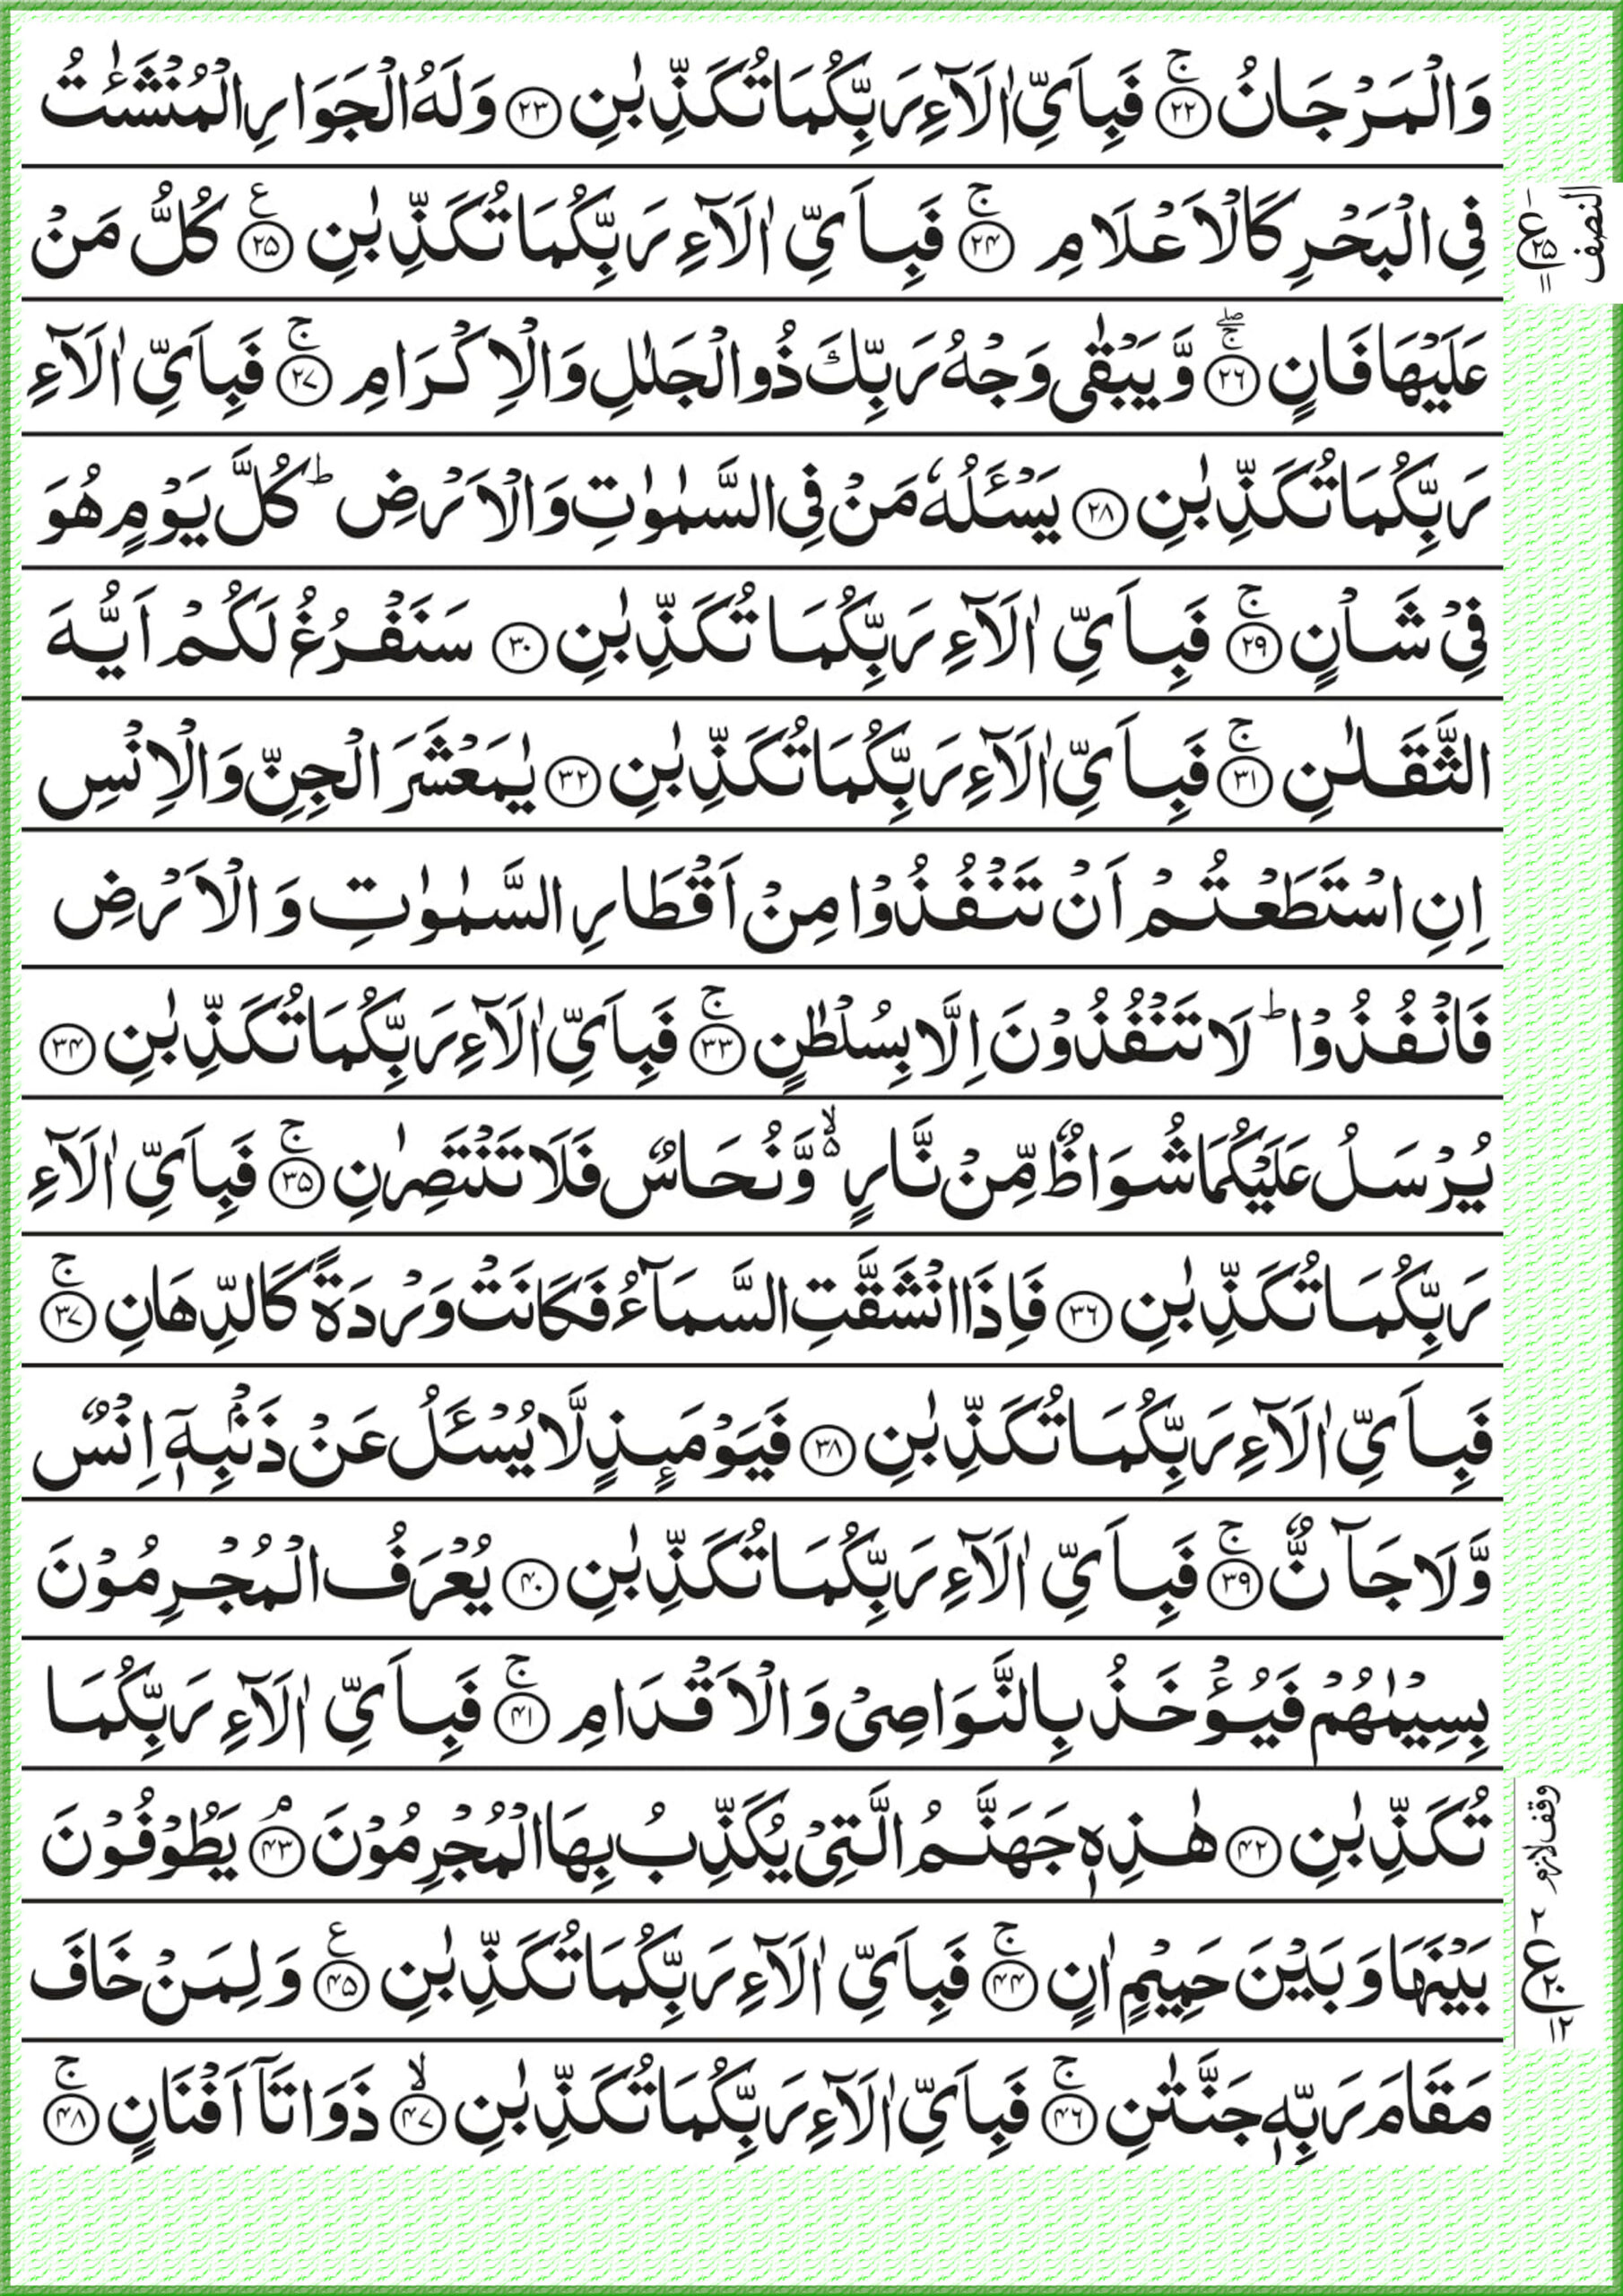 وَالْمَرْجَانُ ۚ﴿۲۲﴾ فَبِاَيِّ اٰلَآءِ رَبِّكُمَا تُكَذِّبٰنِ ﴿۲۳﴾ وَلَهُ الْجَوَارِ الْمُنْشَـٰٔتُ
النصف
فِى الْبَحْرِ كَالْاَعْلَامِ ۚ﴿۲۴﴾ فَبِاَيِّ اٰلَآءِ رَبِّكُمَا تُكَذِّبٰنِ ؑ﴿۲۵﴾ كُلُّ مَنْ
۱ ع ۲۵ ۱۱
عَلَيْهَا فَانٍ ۚۖ﴿۲۶﴾ وَّيَبْقٰى وَجْهُ رَبِّكَ ذُو الْجَلٰلِ وَالْاِكْرَامِ ۚ﴿۲۷﴾ فَبِاَيِّ اٰلَآءِ
رَبِّكُمَا تُكَذِّبٰنِ ﴿۲۸﴾ يَسْـَٔلُهٗ مَنْ فِى السَّمٰوٰتِ وَالْاَرْضِ ؕ كُلَّ يَوْمٍ هُوَ
فِيْ شَاْنٍ ۚ﴿۲۹﴾ فَبِاَيِّ اٰلَآءِ رَبِّكُمَا تُكَذِّبٰنِ ﴿۳۰﴾ سَنَفْرُغُ لَكُمْ اَيُّهَ
الثَّقَلٰنِ ۚ﴿۳۱﴾ فَبِاَيِّ اٰلَآءِ رَبِّكُمَا تُكَذِّبٰنِ ﴿۳۲﴾ يٰمَعْشَرَ الْجِنِّ وَالْاِنْسِ
اِنِ اسْتَطَعْتُمْ اَنْ تَنْفُذُوْا مِنْ اَقْطَارِ السَّمٰوٰتِ وَالْاَرْضِ
فَانْفُذُوْا ؕ لَا تَنْفُذُوْنَ اِلَّا بِسُلْطٰنٍ ۚ﴿۳۳﴾ فَبِاَيِّ اٰلَآءِ رَبِّكُمَا تُكَذِّبٰنِ ﴿۳۴﴾
يُرْسَلُ عَلَيْكُمَا شُوَاظٌ مِّنْ نَّارٍ ۙ۬ وَّنُحَاسٌ فَلَا تَنْتَصِرٰنِ ۚ﴿۳۵﴾ فَبِاَيِّ اٰلَآءِ
رَبِّكُمَا تُكَذِّبٰنِ ﴿۳۶﴾ فَاِذَا انْشَقَّتِ السَّمَآءُ فَكَانَتْ وَرْدَةً كَالدِّهَانِ ۚ﴿۳۷﴾
فَبِاَيِّ اٰلَآءِ رَبِّكُمَا تُكَذِّبٰنِ ﴿۳۸﴾ فَيَوْمَىِٕذٍ لَّا يُسْـَٔلُ عَنْ ذَنْۢبِهٖٓ اِنْسٌ
وَّلَا جَآنٌّ ۚ﴿۳۹﴾ فَبِاَيِّ اٰلَآءِ رَبِّكُمَا تُكَذِّبٰنِ ﴿۴۰﴾ يُعْرَفُ الْمُجْرِمُوْنَ
بِسِيْمٰهُمْ فَيُؤْخَذُ بِالنَّوَاصِيْ وَالْاَقْدَامِ ۚ﴿۴۱﴾ فَبِاَيِّ اٰلَآءِ رَبِّكُمَا
تُكَذِّبٰنِ ﴿۴۲﴾ هٰذِهٖ جَهَنَّمُ الَّتِيْ يُكَذِّبُ بِهَا الْمُجْرِمُوْنَ ۘ﴿۴۳﴾ يَطُوْفُوْنَ
وقف لازم
بَيْنَهَا وَبَيْنَ حَمِيْمٍ اٰنٍ ۚ﴿۴۴﴾ فَبِاَيِّ اٰلَآءِ رَبِّكُمَا تُكَذِّبٰنِ ؑ﴿۴۵﴾ وَلِمَنْ خَافَ
۲ ع ۲۰ ۱۲
مَقَامَ رَبِّهٖ جَنَّتٰنِ ۚ﴿۴۶﴾ فَبِاَيِّ اٰلَآءِ رَبِّكُمَا تُكَذِّبٰنِ ۙ﴿۴۷﴾ ذَوَاتَآ اَفْنَانٍ ۚ﴿۴۸﴾